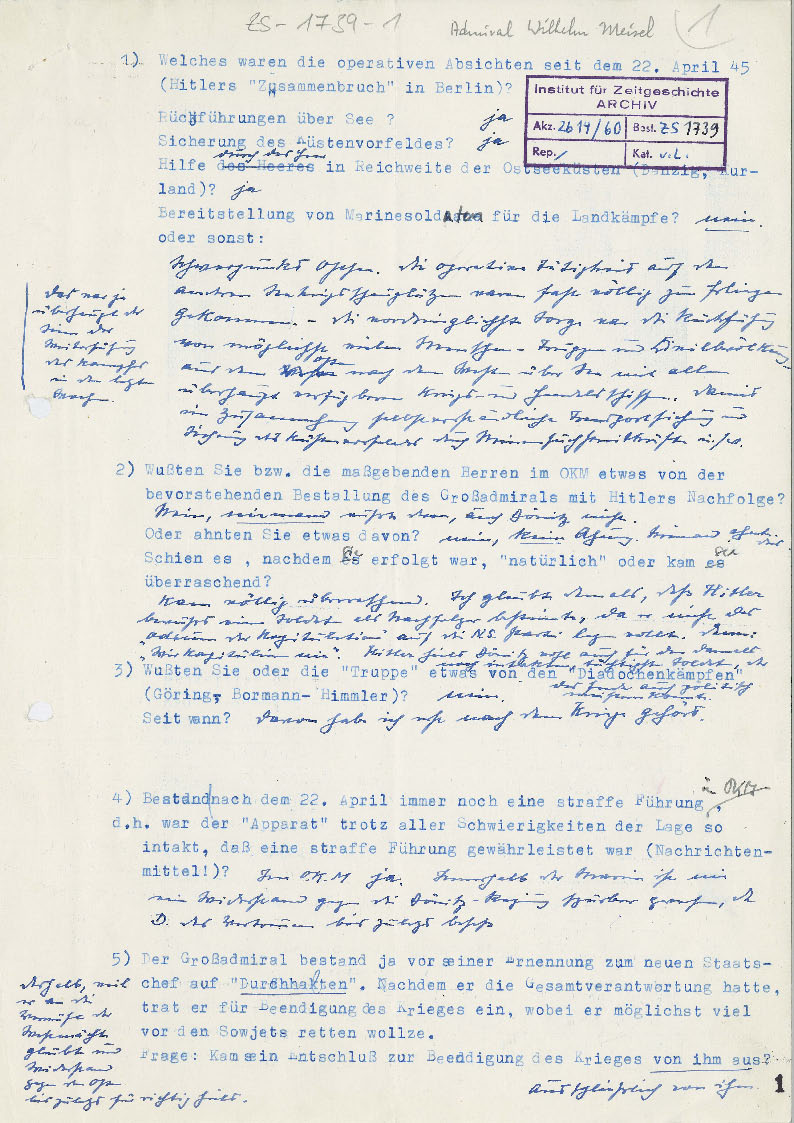 ZS-1739-1 Admiral Wilhelm Meisel 1
1) Welches waren die operativen Absichten seit dem 22. April 45
(Hitlers "Zusammenbruch" in Berlin)?
Institut für Zeitgeschichte
ARCHIV
Akz. 2614/60 Best. ZS 1739
Rep. / Kat. v.L.
Rückführungen über See ? ja
Sicherung des Küstenvorfeldes? ja
durch das Heer
Hilfe des Heeres in Reichweite der Ostseeküsten (Danzig, Kur-
land)? ja
Bereitstellung von Marinesoldaten für die Landkämpfe? nein.
oder sonst:
Schwerpunkt Osten. Die operative Tätigkeit auf den
anderen Seekriegsschauplätzen waren fast völlig zum Erliegen
gekommen. – Die vordringlichste Sorge war die Rückführung
von möglichst vielen Menschen – Truppen und Zivilbevölkerung
aus dem Osten nach dem Westen über See mit allen
überhaupt verfügbaren Kriegs- und Handelsschiffen. Damit
im Zusammenhang selbstverständliche Transportsicherung und
Sicherung des Küstenvorfeldes durch Minensuchstreitkräfte u.s.w.
Das war ja
überhaupt der
Sinn der
Weiterführung
des Kampfes
in den letzten
Wochen.
2) Wußten Sie bzw. die maßgebenden Herren im OKM etwas von der
bevorstehenden Bestallung des Großadmirals mit Hitlers Nachfolge?
Nein, niemand wußte davon, auch Dönitz nicht.
Oder ahnten Sie etwas davon? nein, keine Ahnung. Niemand ahnte das
Schien es , nachdem es sie erfolgt war, "natürlich" oder kam es sie
überraschend?
Kam völlig überraschend. Ich glaubte damals, daß Hitler
bewußt einen Soldat als Nachfolger bestimmte, da er nicht das
"Odium der Kapitulation" auf die N.S. Partei legen wollte. Denn:
"Wir kapitulieren nie". Hitler hielt Dönitz wohl auch für den damals
noch intakten tüchtigsten Soldat, der
3) Wußten Sie oder die "Truppe" etwas von den "Diadochenkämpfen"
(Göring, Bormann- Himmler)? nein.
Seit wann? Davon habe ich erst nach dem Kriege gehört.
4) Bestand nach dem 22. April immer noch eine straffe Führung im OKM,
d.h. war der "Apparat" trotz aller Schwierigkeiten der Lage so
intakt, daß eine straffe Führung gewährleistet war (Nachrichten-
mittel!)? Im O.K.M ja. Innerhalb der Marine ist nie
ein Widerstand gegen die Dönitz-Regierung spürbar gewesen, da
D. das Vertrauen bis zuletzt besaß
5) Der Großadmiral bestand ja vor seiner Ernennung zum neuen Staats-
chef auf "Durchhalten". Nachdem er die Gesamtverantwortung hatte,
trat er für Beendigung des Krieges ein, wobei er möglichst viel
vor den Sowjets retten wollze.
Frage: Kam sein Entschluß zur Beendigung des Krieges von ihm aus?
Ausschließlich von ihm.
deshalb, weil
er an die
der
Wehrmacht
glaubte und
Widerstand
gegen den Osten
bis zuletzt für richtig hielt.
1